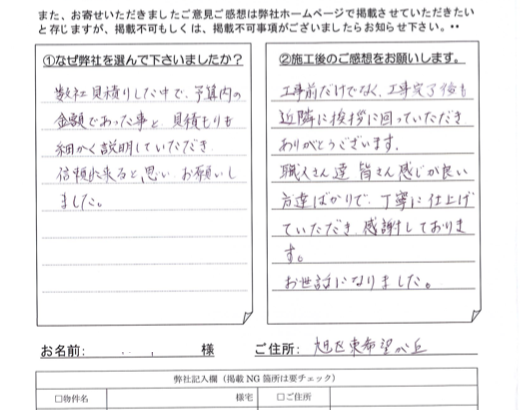 また、お寄せいただきましたご意見ご感想は弊社ホームページで掲載させていただきたい
と存じますが、掲載不可もしくは、掲載不可事項がございましたらお知らせ下さい。・・
①なぜ弊社を選んで下さいましたか？
数社見積りした中で、予算内の
金額であった事と、見積もりを
細かく説明していただき
信頼出来ると思い お願いし
ました。
②施工後のご感想をお願いします。
工事前だけでなく、工事完了後も
近隣に挨拶に回っていただき
ありがとうございます。
職人さん達 皆さん感じが良い
方達ばかりで、丁寧に仕上げ
ていただき、感謝しておりま
す。
お世話になりました。
お名前: 様 ご住所: 旭区東希望が丘
弊社記入欄（掲載 NG 箇所は要チェック）
□物件名 様宅 □ご住所